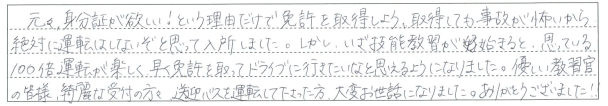 元々、身分証が欲しい!という理由だけで免許を取得しよう、取得しても事故が怖いから
絶対に運転はしないぞと思って入所しました。しかし、いざ技能教習が始まると、思っている
100倍運転が楽しく、早く免許を取ってドライブに行きたいなと思えるようになりました。優しい教習官
の皆様、綺麗な受付の方々、送迎バスを運転して下さった方、大変お世話になりました。ありがとうございました!